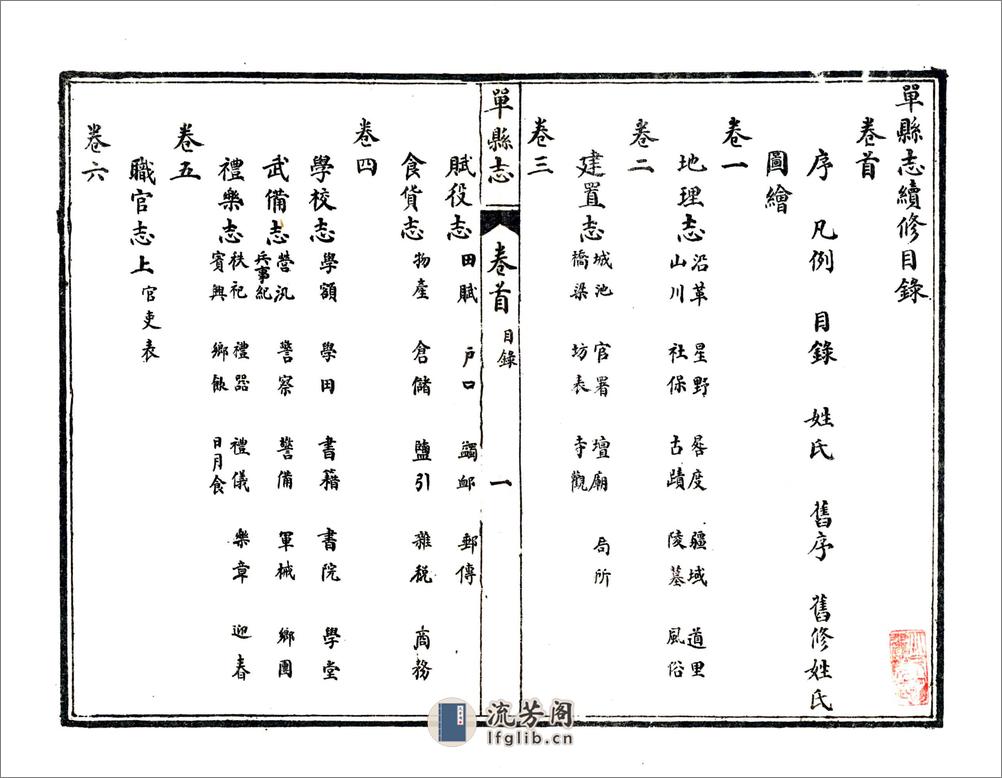 單縣志續修目錄
卷首
序 凡例 目錄 姓氏 舊序 舊修姓氏
圖繪
卷一
地理志 沿革 星野 晷度 疆域 道里
山川 社保 古蹟 陵墓 風俗
卷二
建置志 城池 官署 壇廟 局所
橋梁 坊表 寺觀
卷三
單縣志 卷首 目錄 一
賦役志 田賦 戶口 蠲卹 郵傳
食貨志 物產 倉儲 鹽引 雜稅 商務
卷四
學校志 學額 學田 書籍 書院 學堂
武備志 營汛 警察 警備 軍械 鄉團
兵事紀
禮樂志 秩祀 禮器 禮儀 樂章 迎春
賓興 鄉飲 日月食
卷五
職官志上 官吏表
卷六
流芳阁
lfglib.cn